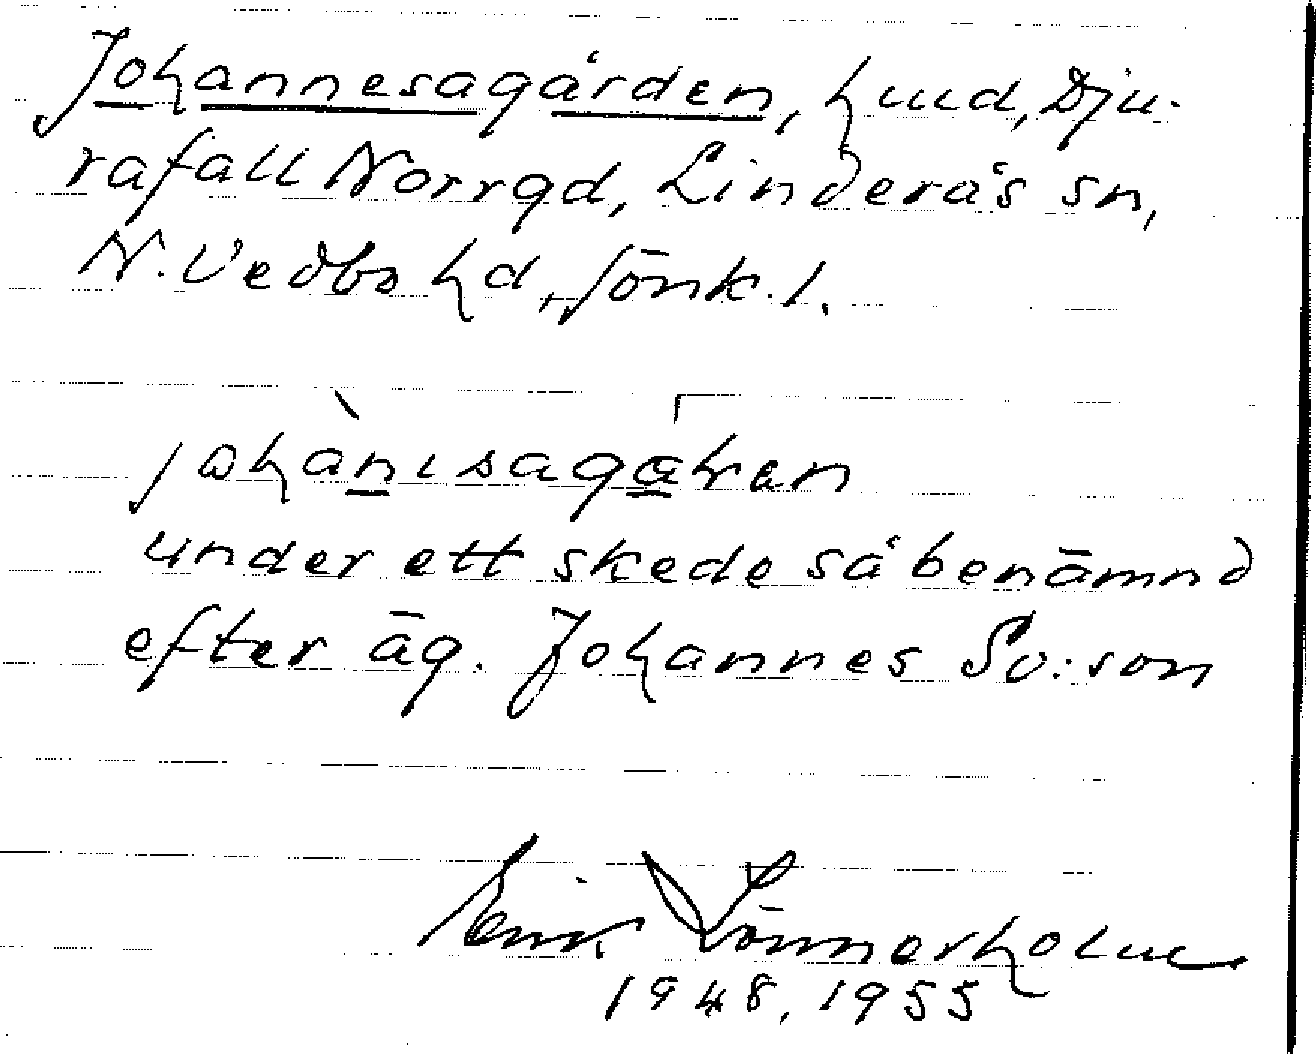 Johannesagården, hmd, Dju-
rafall Norrgd, Linderås sn,
N. Vedbo hd, Jönk. l.
johànɩsaga̱ƙan
under ett skede så benämnd
efter äg. Johannes Sv:son
Einar Lönnerholm
1948, 1955